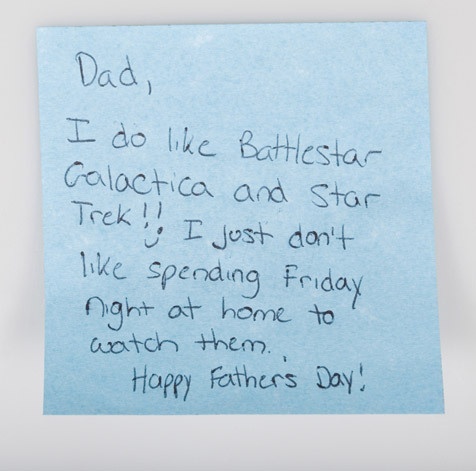 Dad,
I do like Battlestar
Galactica and Star
Trek!! I just don't
like spending Friday
night at home to
watch them.
Happy Father's Day!